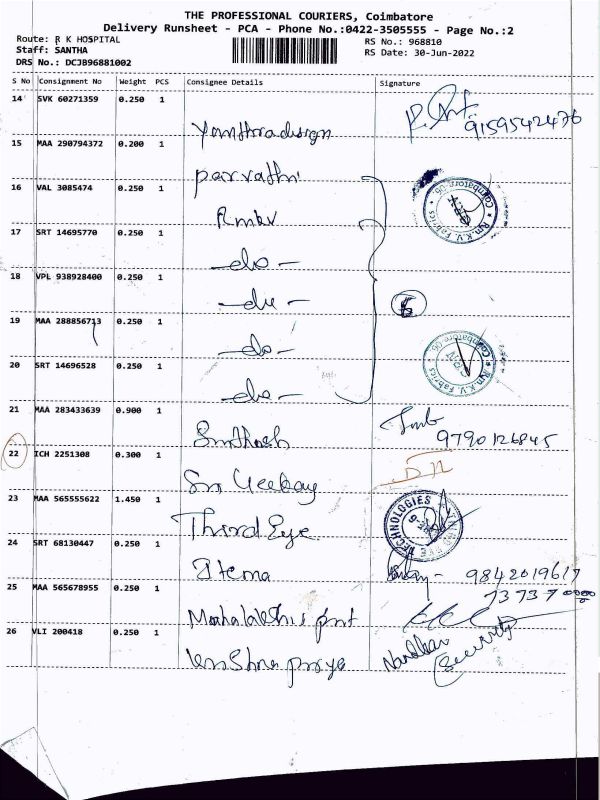 THE PROFESSIONAL COURIERS, Coimbatore
Delivery Runsheet - PCA - Phone No.:0422-3505555 - Page No.:2
Route: R K HOSPITAL
Staff: SANTHA
DRS No.: DCJB96881002
RS No.: 968810
RS Date: 30-Jun-2022
S No Consignment No Weight PCS Consignee Details Signature
14 SVK 60271359 0.250 1
9159542476
15 MAA 290794372 0.200 1
parvathi
16 VAL 3085474 0.250 1
Rmkv
Rm.K.V. Fabrics Coimbatore
17 SRT 14695770 0.250 1
-do-
18 VPL 938928400 0.250 1
-do-
19 MAA 288856713 0.250 1
-do-
20 SRT 14696528 0.250 1
-do-
Rm.K.V. Fabrics Coimbatore
21 MAA 283433639 0.900 1
Santhosh
9790126845
22 ICH 2251308 0.300 1
Sri Geekay
23 MAA 565555622 1.450 1
Third Eye
THIRD EYE TECHNOLOGIES
24 SRT 68130447 0.250 1
9842019617
25 MAA 565678955 0.250 1
Mahalakshi print
26 VLI 200418 0.250 1
krishna priya
Security